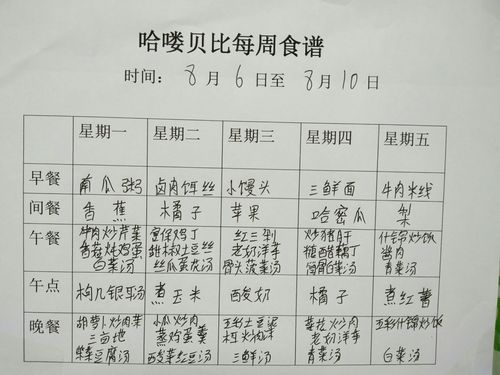 哈喽贝比每周食谱
时间: 8月6日至8月10日
星期一 星期二 星期三 星期四 星期五
早餐 南瓜粥 卤肉饵丝 小馒头 三鲜面 牛肉米线
间餐 香蕉 橘子 苹果 哈密瓜 梨
午餐 牛肉炒芹菜 宫保鸡丁 红三剁 炒猪肝 什锦炒饭
香菇炖鸡蛋 甜椒土豆丝 老奶洋芋 糖醋藕丁 酱肉
白菜汤 丝瓜蛋花汤 骨头菠菜汤 筒骨白菜汤 青菜汤
午点 枸几银耳汤 煮玉米 酸奶 橘子 煮红薯
晚餐 胡萝卜炒肉菜 小瓜炒肉 五彩土豆泥 炒肉 五彩什锦炒饭
三南地 蒸鸡蛋羹 老奶洋芋
豆腐汤 酸菜红豆汤 三鲜汤 青菜汤 白菜汤